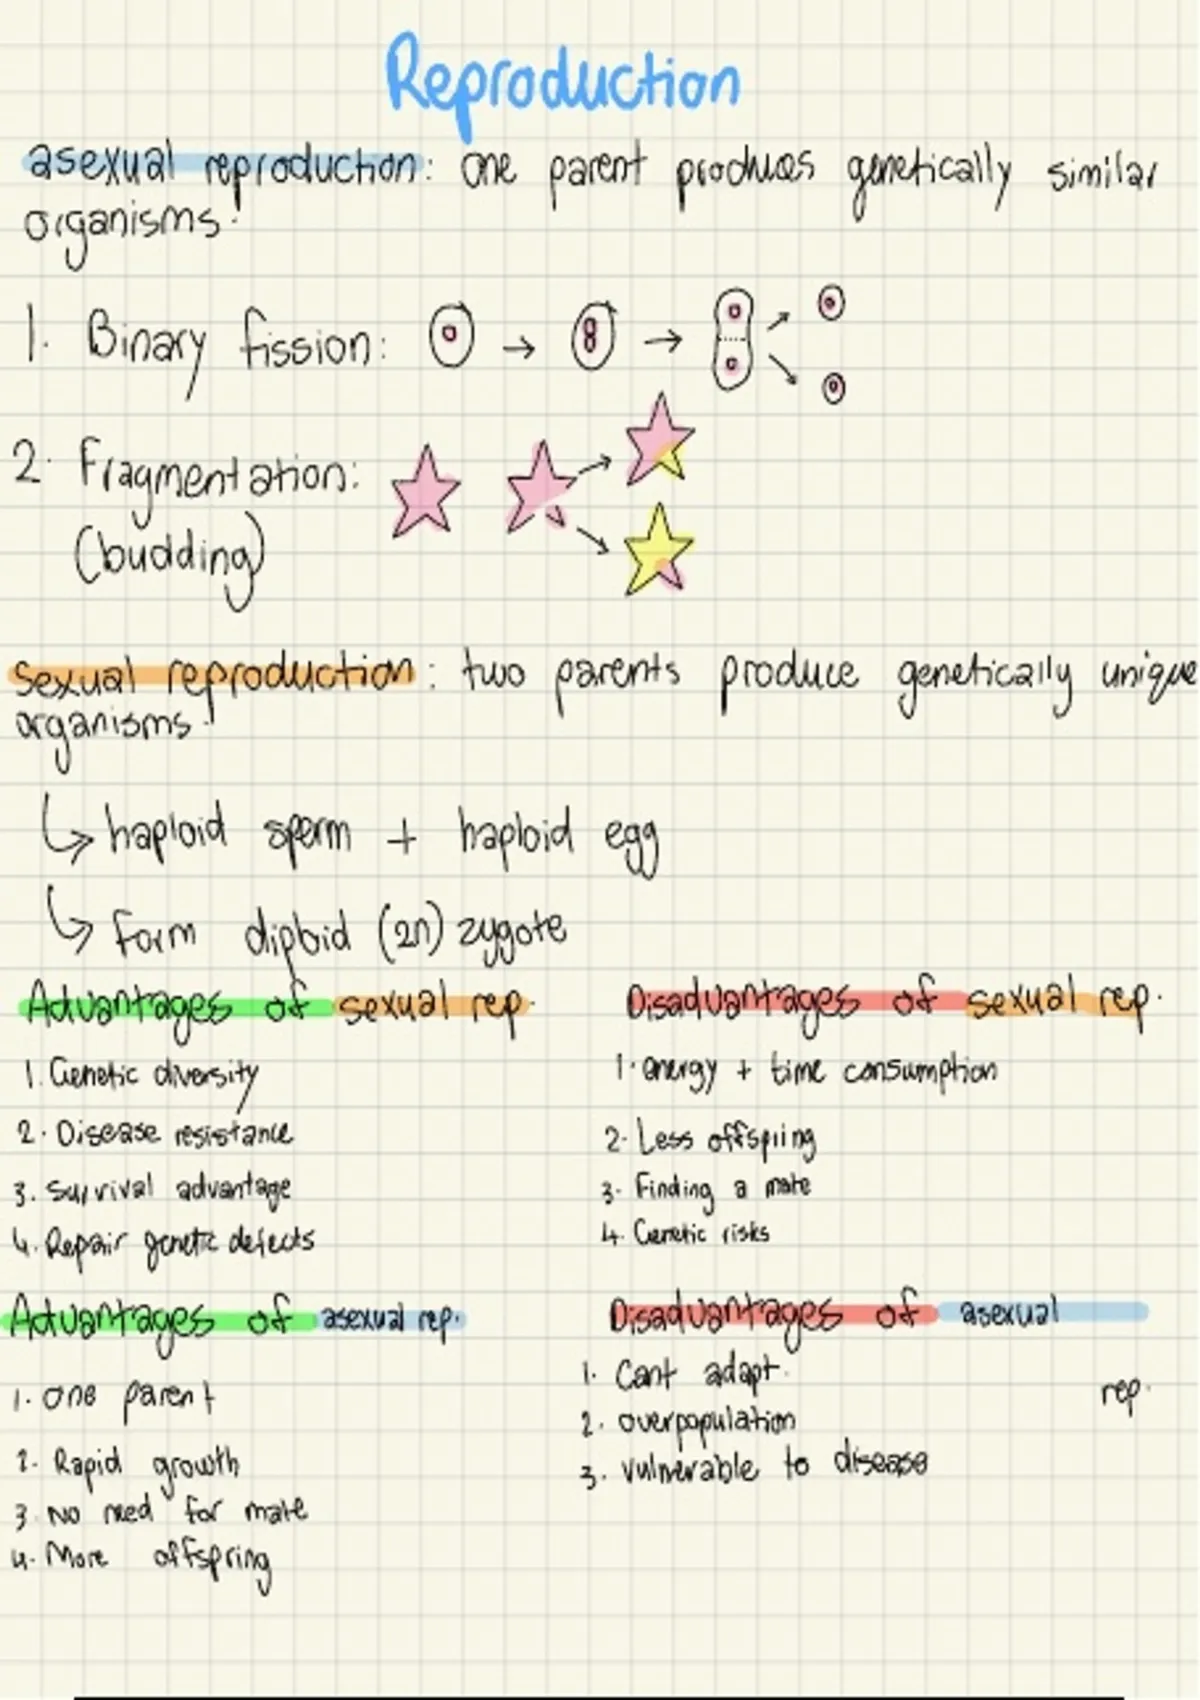 Reproduction
asexual reproduction: one parent produces genetically similar
organisms.
1. Binary fission:
2. Fragmentation:
(budding)
sexual reproduction: two parents produce genetically unique
organisms.
haploid sperm + haploid egg
form diploid (2n) zygote
Advantages of sexual rep.
1. Genetic diversity
2. Disease resistance
3. survival advantage
4. Repair genetic defects
Disadvantages of sexual rep.
1. energy + time consumption
2. Less offspring
3. Finding a mate
4. Genetic risks
Advantages of asexual rep.
1. one parent
2. Rapid growth
3. No need for mate
4. More offspring
Disadvantages of asexual
rep.
1. Cant adapt.
2. overpopulation
3. vulnerable to disease